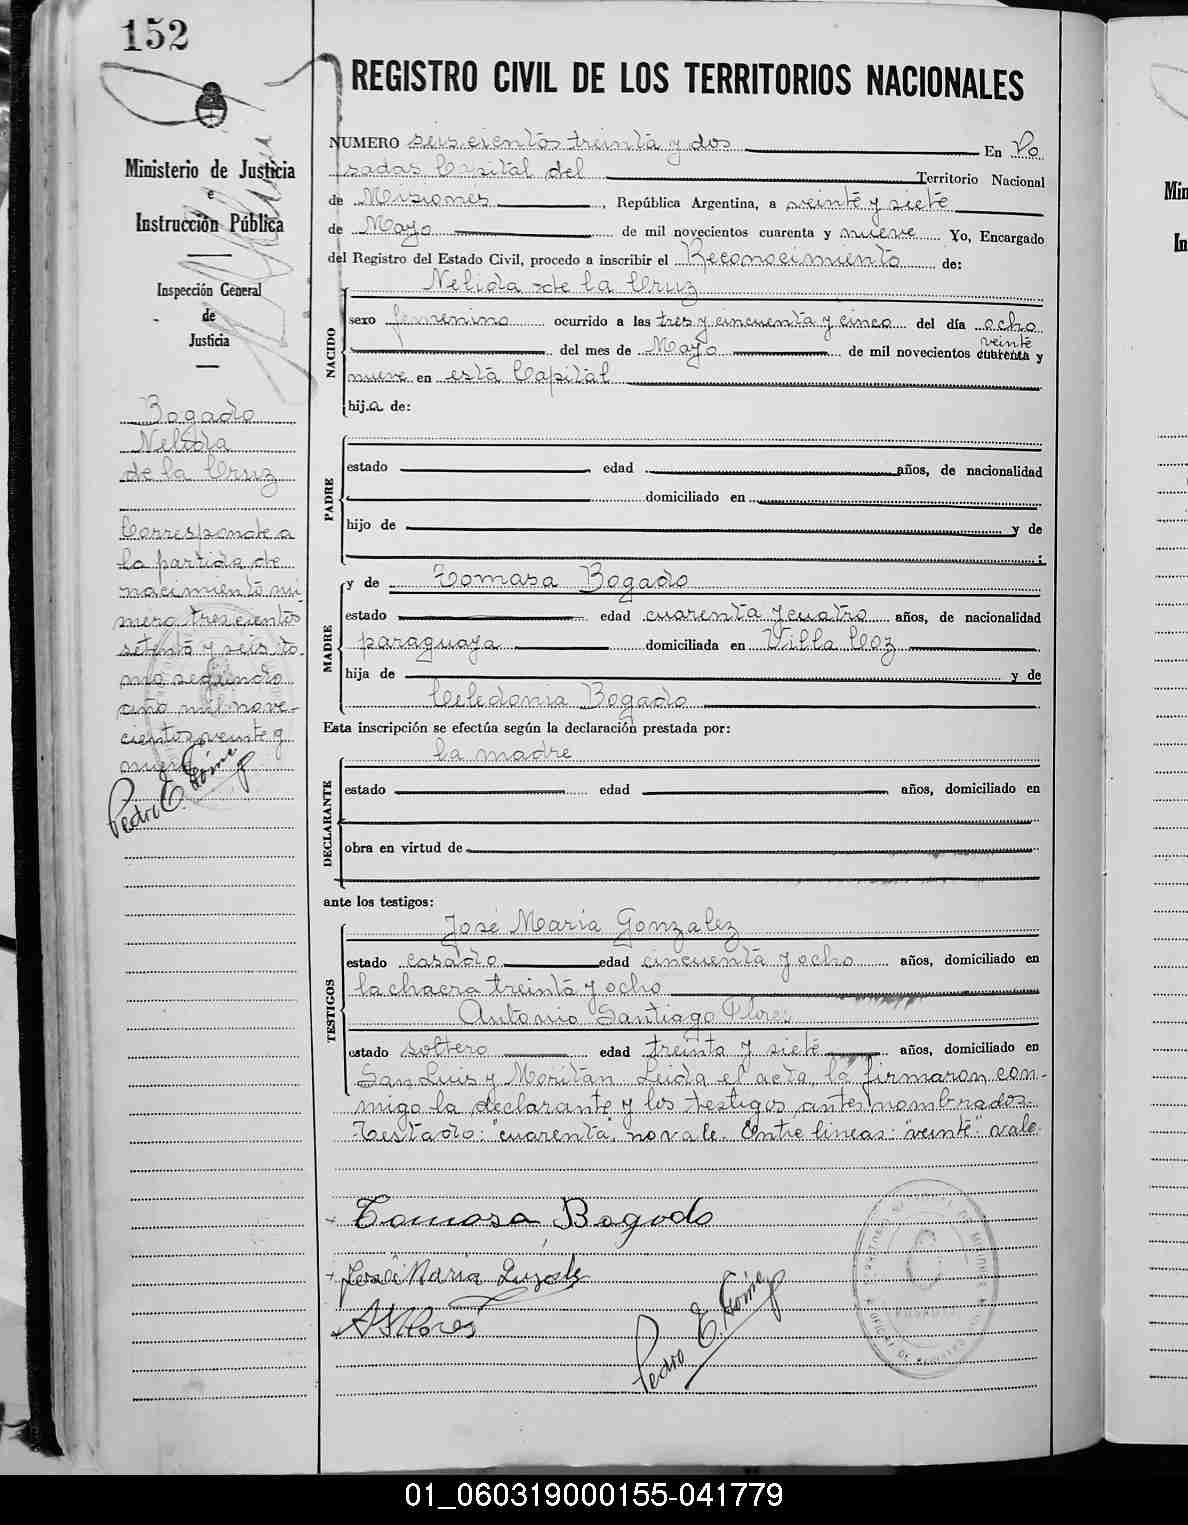 152
REGISTRO CIVIL DE LOS TERRITORIOS NACIONALES
Ministerio de Justicia
e
Instrucción Pública
Inspección General
de
Justicia
Bogado
Nelida
de la Cruz
Corresponde a
la partida de
nacimiento nú-
mero trescientos
setenta y seis to-
mo segundo
año mil nove-
cientos veinte y
nueve
Pedro E. Gómez
NUMERO seiscientos treinta y dos En Po
sadas Capital del Territorio Nacional
de Misiones, República Argentina, a veinte y siete
de Mayo de mil novecientos cuarenta y nueve Yo, Encargado
del Registro del Estado Civil, procedo a inscribir el Reconocimiento de:
NACIDO
Nelida de la Cruz
sexo femenino ocurrido a las tres y cincuenta y cinco del día ocho
veinte
del mes de Mayo de mil novecientos cuarenta y
nueve en esta Capital
hija de:
PADRE
estado edad años, de nacionalidad
domiciliado en
hijo de y de
;
MADRE
y de Tomasa Bogado
estado edad cuarenta y cuatro años, de nacionalidad
paraguaya domiciliada en Villa Coz
hija de y de
Celedonia Bogado
Esta inscripción se efectúa según la declaración prestada por:
DECLARANTE
la madre
estado edad años, domiciliado en
obra en virtud de
ante los testigos:
TESTIGOS
José María Gonzalez
estado casado edad cincuenta y ocho años, domiciliado en
la chacra treinta y ocho
Antonio Santiago Flores
estado soltero edad treinta y siete años, domiciliado en
San Luis y Moritán Leida el acta, la firmaron con-
migo la declarante y los testigos antes nombrados.
Testado: "cuarenta", no vale. Entre lineas: "veinte" vale.
Tomasa Bogado
José Maria
A S Flores
Pedro E. Gómez
Min
In
01_060319000155-041779